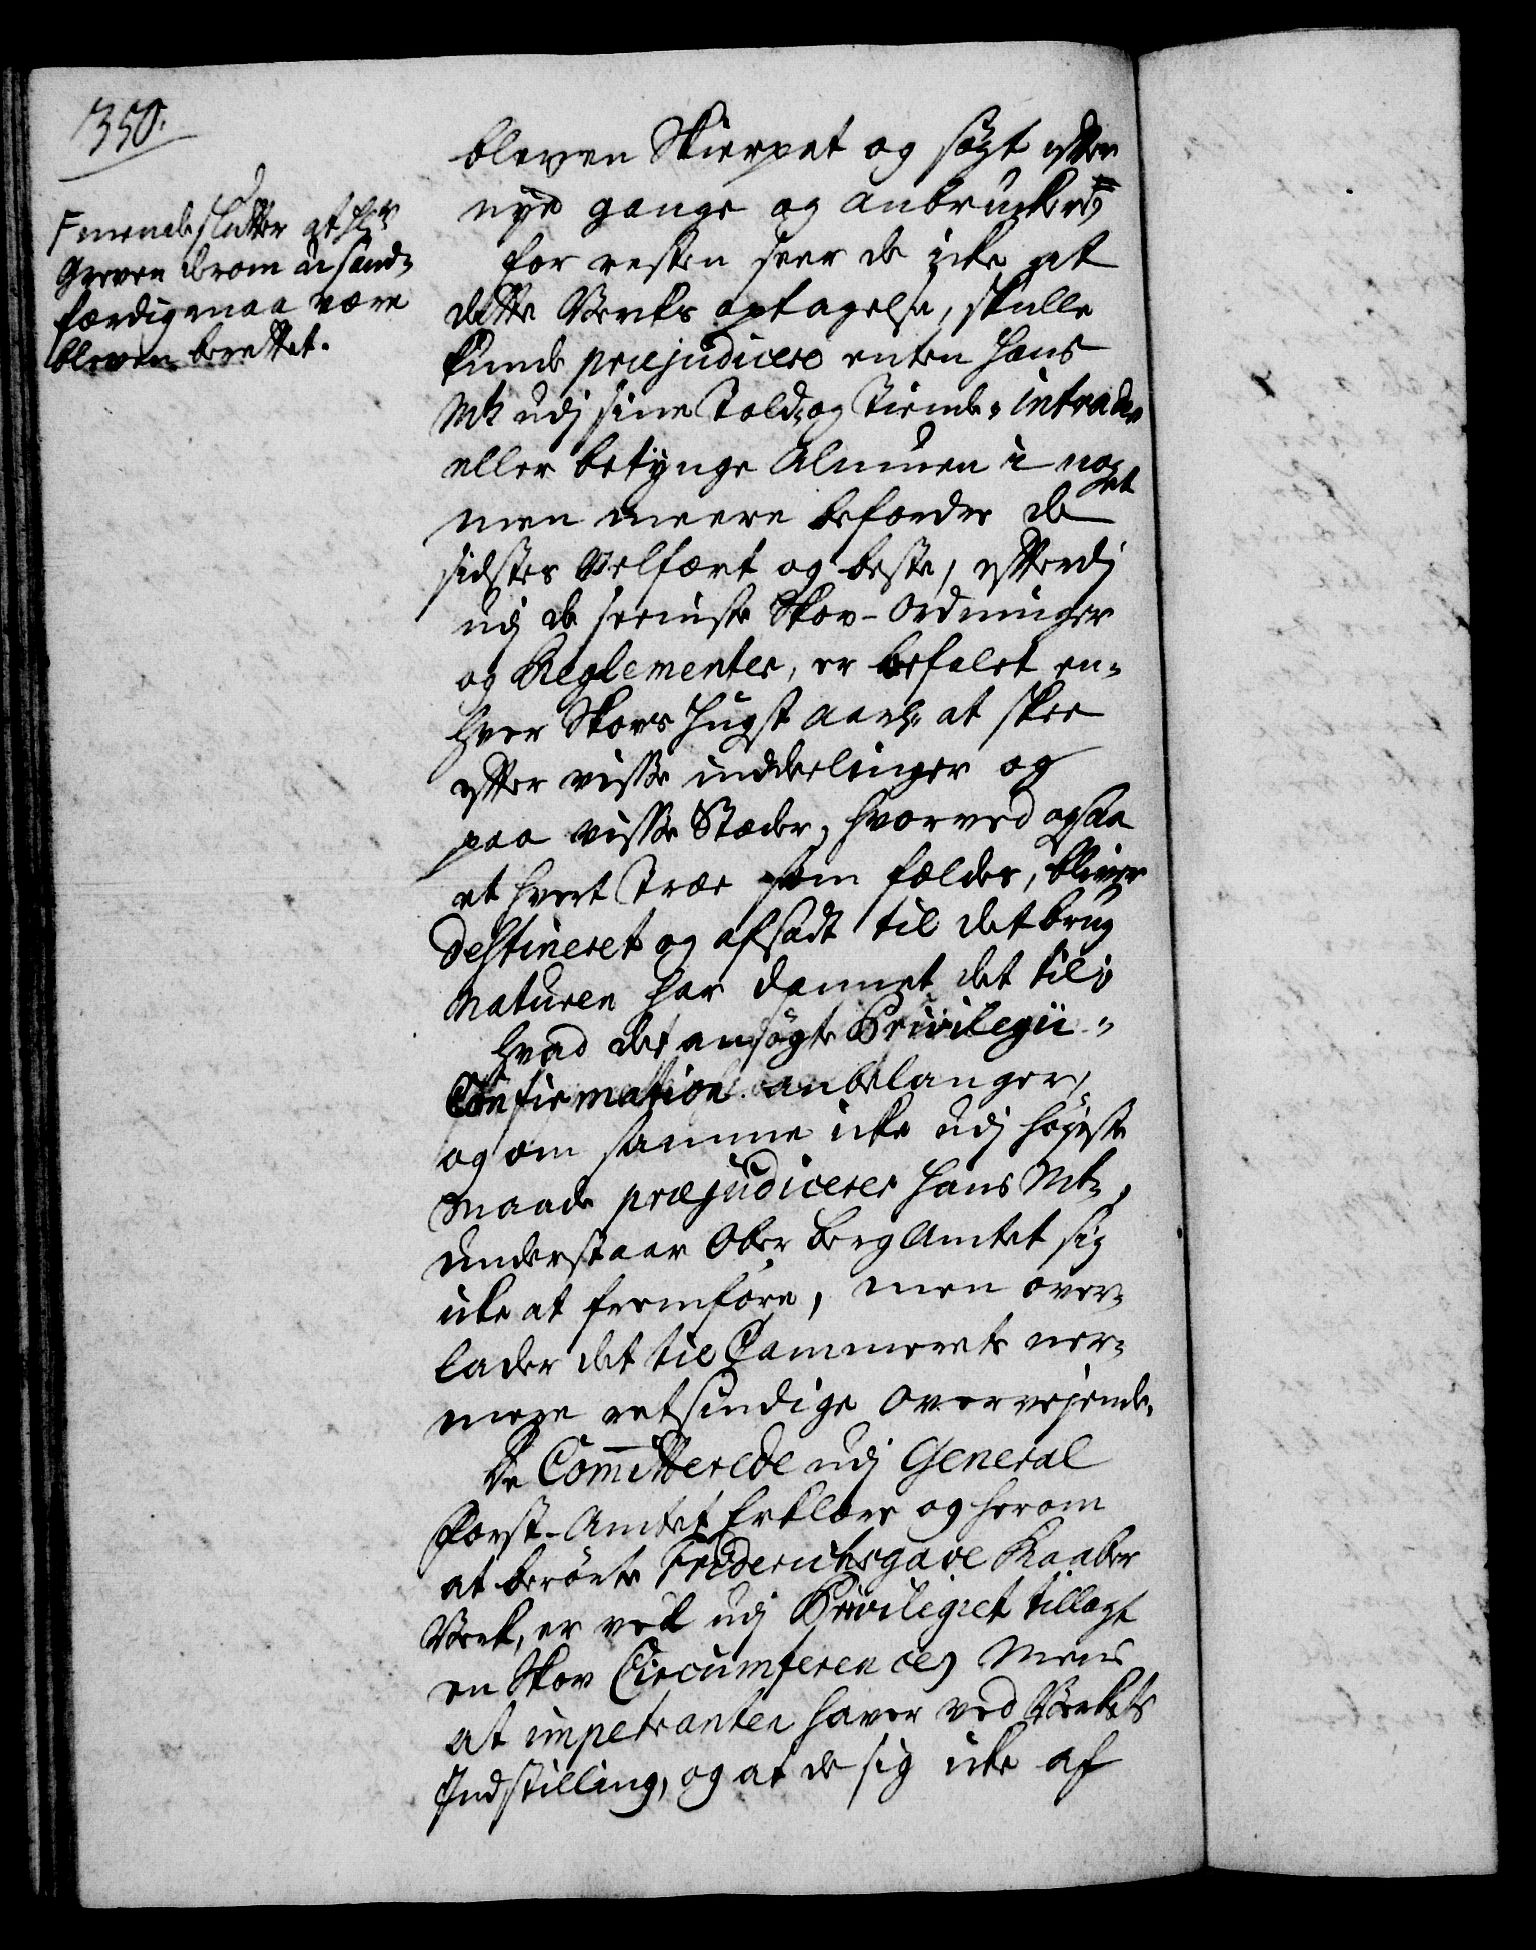 1350.
F mende slutter at hr
Greven derom u sand-
færdig maa være
bleven berettet.
bleven Skierpet og søgt efter
nye gange og anbrucker,
for resten seer de icke at
dette Verks optagelse, skulle
kunde præjudicere enten Hans
Mt udj sine Told- og Tiende- intrader
eller betynge Almuen i noget
men meere befordre de
sidstes Velfært og beste, efterdj
udj de seeniste Skov-Ordninger
og Reglementer, er befalet en-
hver Skovs Hugst aarl. at skee
efter visse inddeelinger og
paa visse Stæder, hvorved ogsaa
et hvert Træe som fældes, bliver
destineret og afsadt til det brug
Naturen har dannet det til;
Hvad det ansøgte Privilegii-
Confirmation anbelanger,
og om samme icke udj høyeste
Maade præjudicerer Hans Mt,
understaar Ober Berg Amtet sig
icke at fremføre, men over-
lader det til Cammerets ner-
mere retsindige overvejende.
De Committerede udj General
Forst-Amtet Erklære og herom
at berørte Friderichsgave Kaaber
Verk, er vel udj Privilegiet tillagt
en Skov Circumference, Mens
at impetranten haver ved Verkets
Indstilling, og at de sig icke af